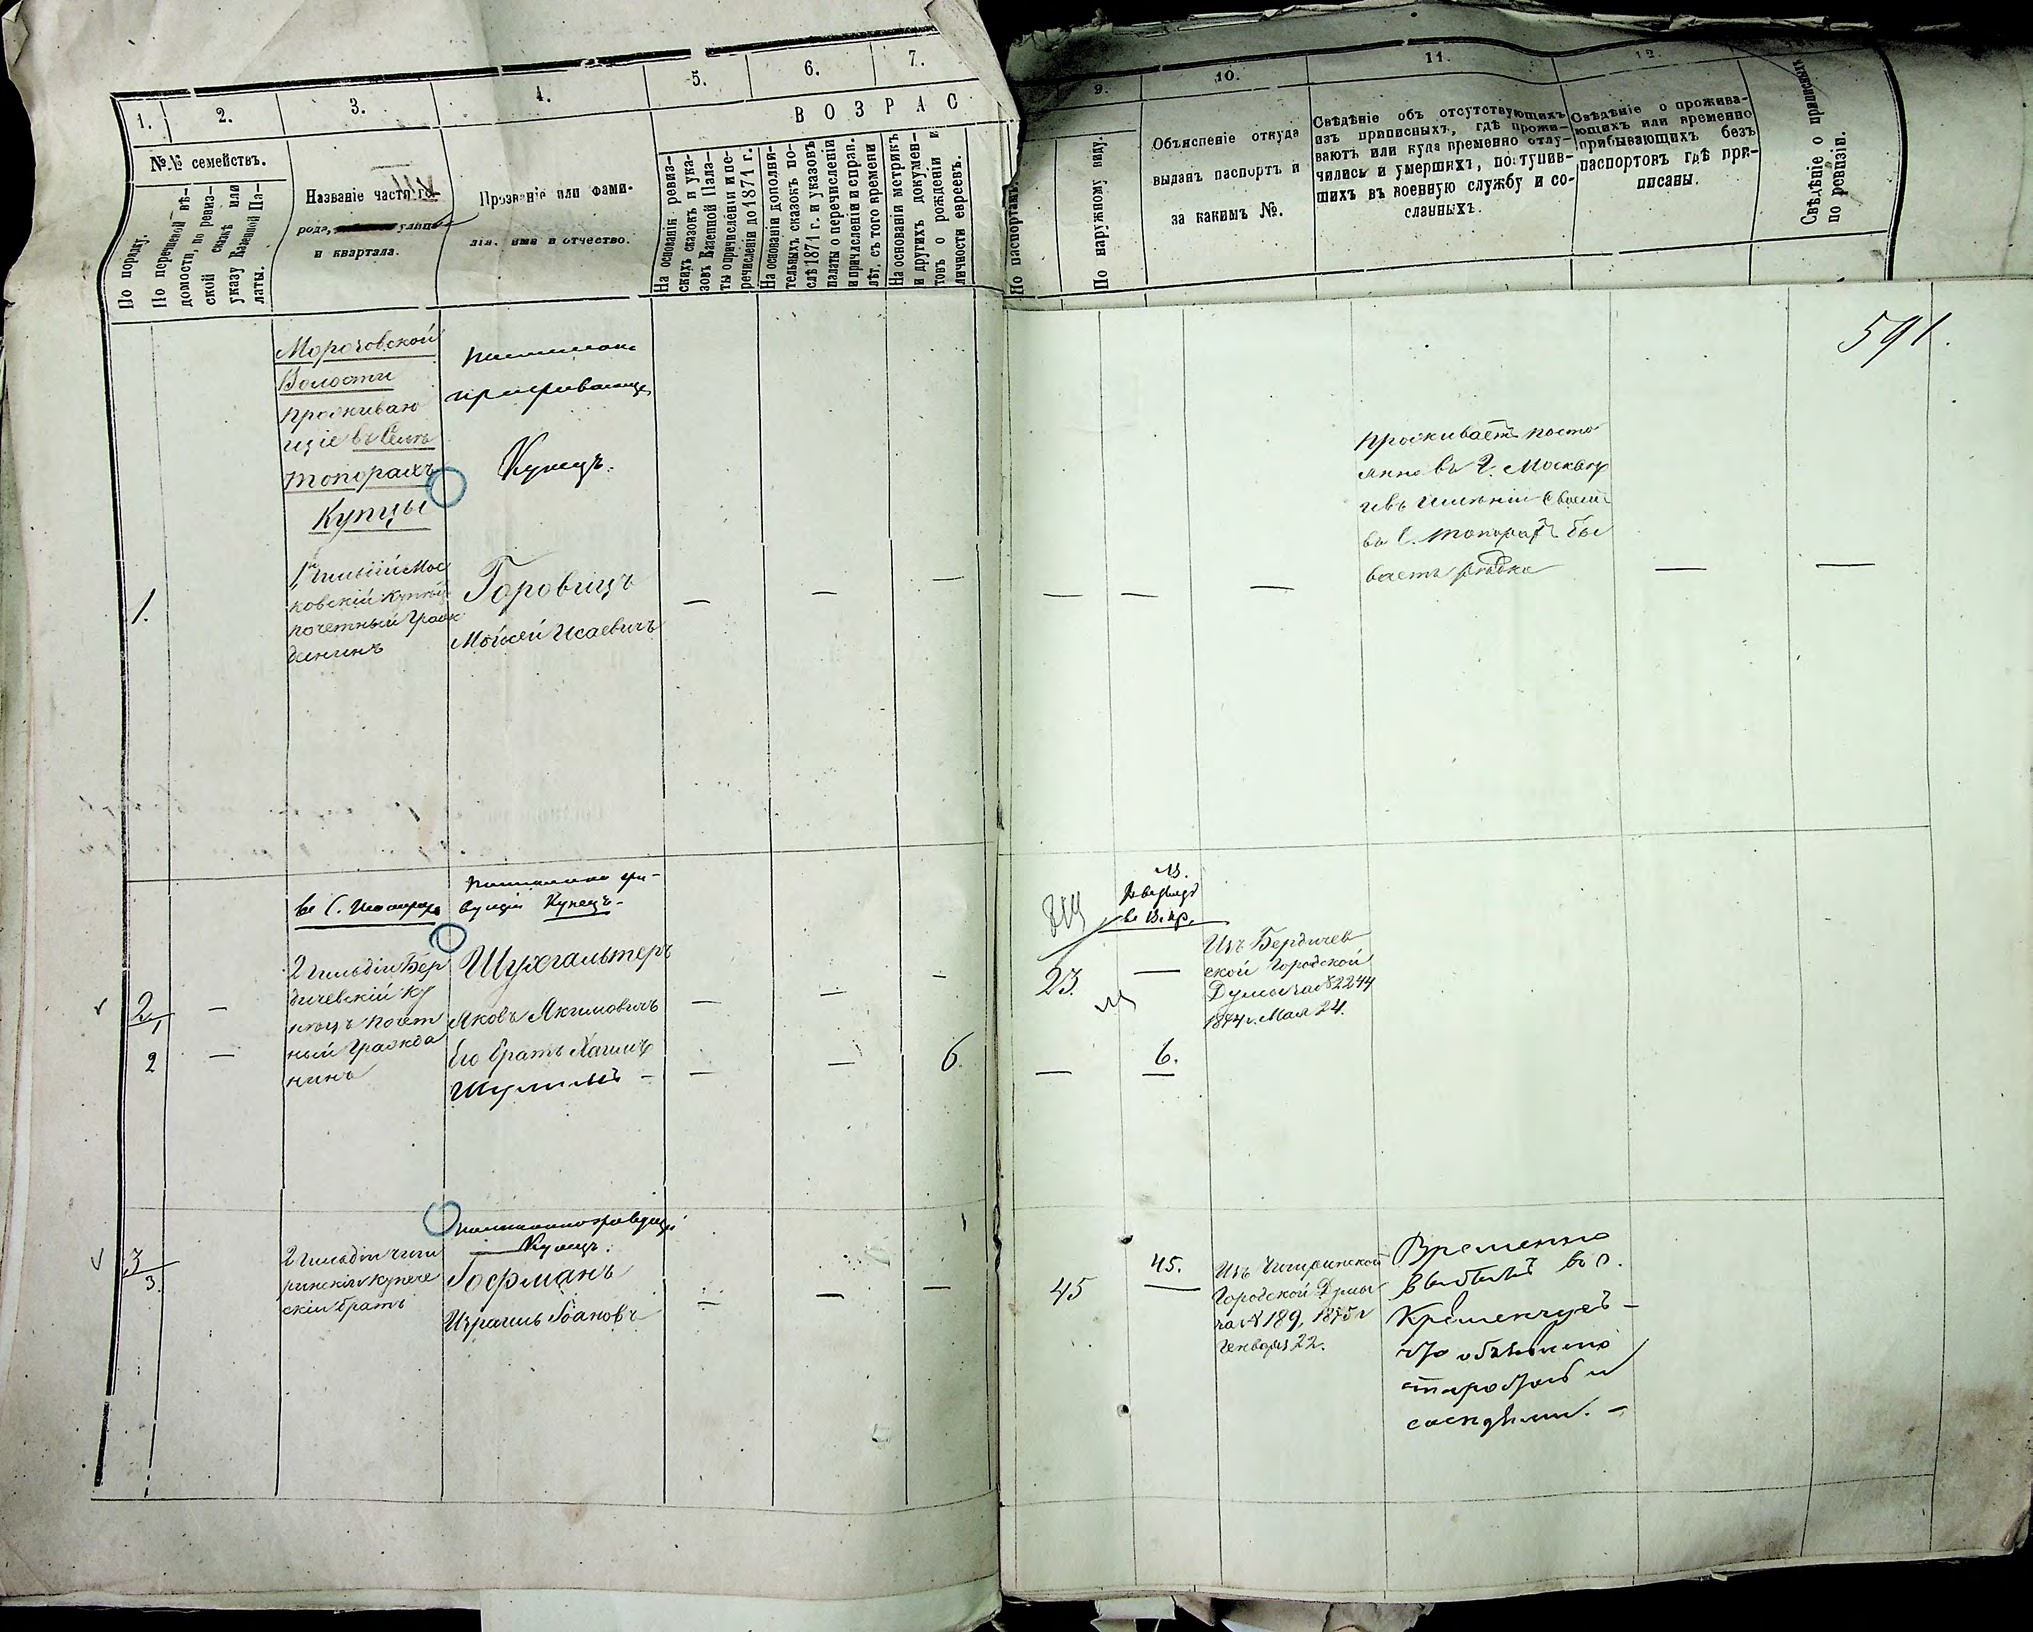 1.
2.
3.
4.
5.
6.
7.
ВОЗРАС
№№ семействъ.
По порядку.
По перечневой вѣ-
домости, по ревиз-
ской сказкѣ или
указу Казенной Па-
латы.
Названіе части го-
рода, улицы
и квартала.
Прозваніе или фами-
лія, имя и отчество.
На основаніи ревиз-
скихъ сказокъ и ука-
зовъ Казенной Пала-
ты о причисленіи и пе-
речисленіи до 1871 г.
На основаніи дополни-
тельныхъ сказокъ по-
слѣ 1871 г. и указовъ
палаты о перечисленіи
и причисленіи и справ.
лѣт. съ того времени
На основаніи метрикъ
и другихъ докумен-
товъ о рожденіи и
личности евреевъ.
9.
10.
11.
12.
По паспортамъ.
По наружному виду.
Объясненіе откуда
выданъ паспортъ и
за какимъ №.
Свѣдѣніе объ отсутствующихъ
изъ приписныхъ, гдѣ прожи-
ваютъ или куда временно отлу-
чились и умершихъ, поступив-
шихъ въ военную службу и со-
сланныхъ.
Свѣдѣніе о прожива-
ющихъ или временно
прибывающихъ безъ
паспортовъ гдѣ при-
писаны.
Свѣдѣніе о приписныхъ
по ревизіи.
591.
Морозовской
Волости
проживаю
щіе въ Селѣ
Топорахъ
Купцы
Купецъ.
1.
1й гильдіи Мос
ковскій купецъ
почетный Граж
данинъ
Горовицъ
Мойсей Исаевичъ
— — — — — —
Проживаетъ посто
янно въ Г. Москвѣ
и въ имѣніи своемъ
въ С. Топорахъ бы
ваетъ рѣдко
— —
въ С. Топорахъ
Купецъ.
2/1
—
2 гильдіи Бер
дичевскій ку
пецъ почет
ный Гражда
нинъ
Шулгальтеръ
Яковъ Акимовичъ
— — —
23.
—
Изъ Бердичев
ской Городской
Думы за №2244
1874 г. Мая 24.
2
—
его братъ Хаимъ
Шулимъ —
— —
6.
—
6.
3/3.
2 гильдіи Чиги
ринскій купече
скій братъ
Купецъ.
Гофманъ
Израиль Іоановъ
— — —
45
45.
Изъ Чигиринской
Городской Думы
за №189, 1875 г
Генваря 22.
Временно
выбылъ въ г.
Кременчугъ —
что объявлено
старостою и
сосѣдями. —